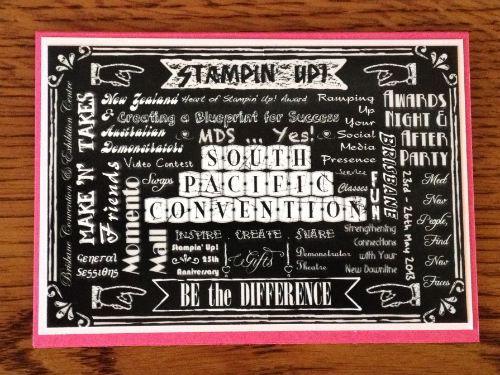 STAMPIN' UP!
Brisbane Convention & Exhibition Centre
MAKE 'N' TAKES
General
Sessions
New Zealand
&
Australian
Demonstrators
Heart of Stampin' Up! Award
Creating a Blueprint for Success
MDS ... Yes!
Video Contest
Friends
Swaps
Momento
Mall
Ramping
Up
Your
Social
Media
Presence
AWARDS
NIGHT &
AFTER
PARTY
BRISBANE
23rd - 26th May 2013
SOUTH
PACIFIC
CONVENTION
Service
Classes
FUN
Meet
New
People,
Find
New
Faces
INSPIRE . CREATE . SHARE
Stampin' Up!
25th
Anniversary
Gifts
Demonstrator
Theatre
Strengthening
Connections
with Your
New Downline
BE the DIFFERENCE